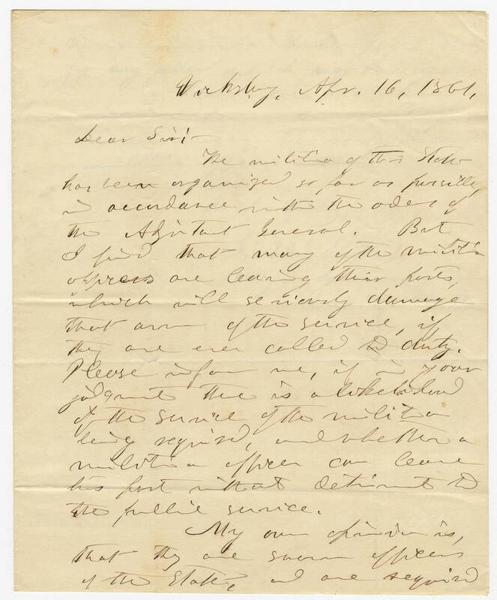 Vicksburg, Apr. 16, 1861,
Dear Sir:
The militia of this State
has been organized so far as possible
in accordance with the orders of
the Adjutant General. But
I find that many of the militia
officers are leaving their posts,
which will seriously damage
that arm of the service, if
they are ever called to duty.
Please inform me, if in your
judgment there is a likelihood
of the service of the militia
being required, and whether a
militia officer can leave
his post without detriment to
the public service.
My own opinion is,
that they are sworn officers
of the State, and are required